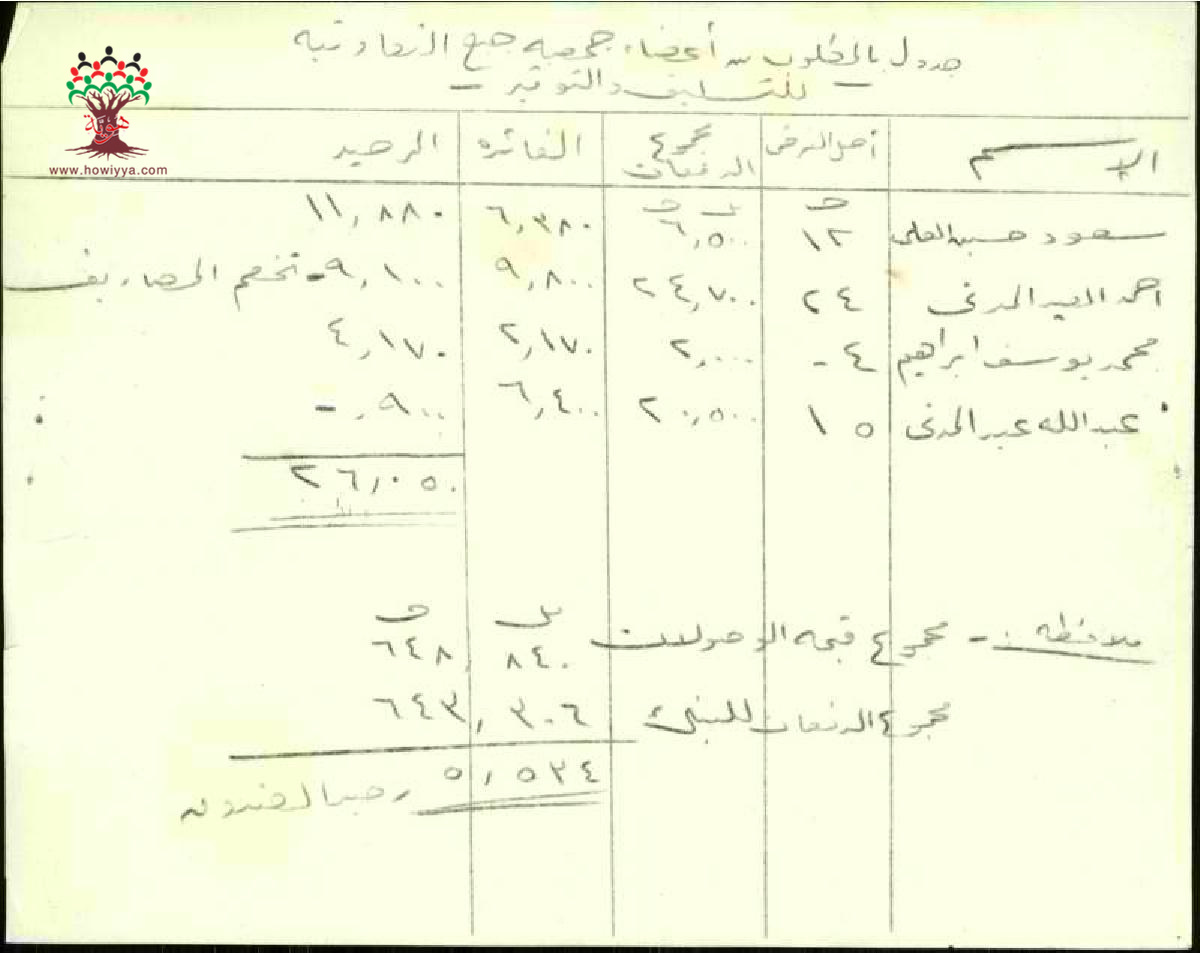 جدول بالمطلوب من أعضاء جمعية جبع التعاونية
للتسليف والتوفير
هوية
www.howiyya.com
الإسم أصل القرض مجموع الدفعات الفائده الرصيد
ج مل ج
سعود حسين العلي ١٢ ٦,٥٠٠ ٦,٣٨٠ ١١,٨٨٠
احمد العبد المدني ٢٤ ٢٤,٧٠٠ ٩,٨٠٠ ٩,١٠٠ - تخصم المصاريف
محمد يوسف ابراهيم ٤ - ٢,٠٠٠ ٢,١٧٠ ٤,١٧٠
عبدالله عبد المدني ١٥ ٢٠,٥٠٠ ٦,٤٠٠ ,٩٠٠ -
٢٦,٠٥٠
مل ج
ملاحظه :- مجموع قيمه الوصولات ٨٤٠ ,٦٤٨
مجموع الدفعات للبنك ٣٠٦ ,٦٤٣
٥,٥٣٤ رصيد الصندوق